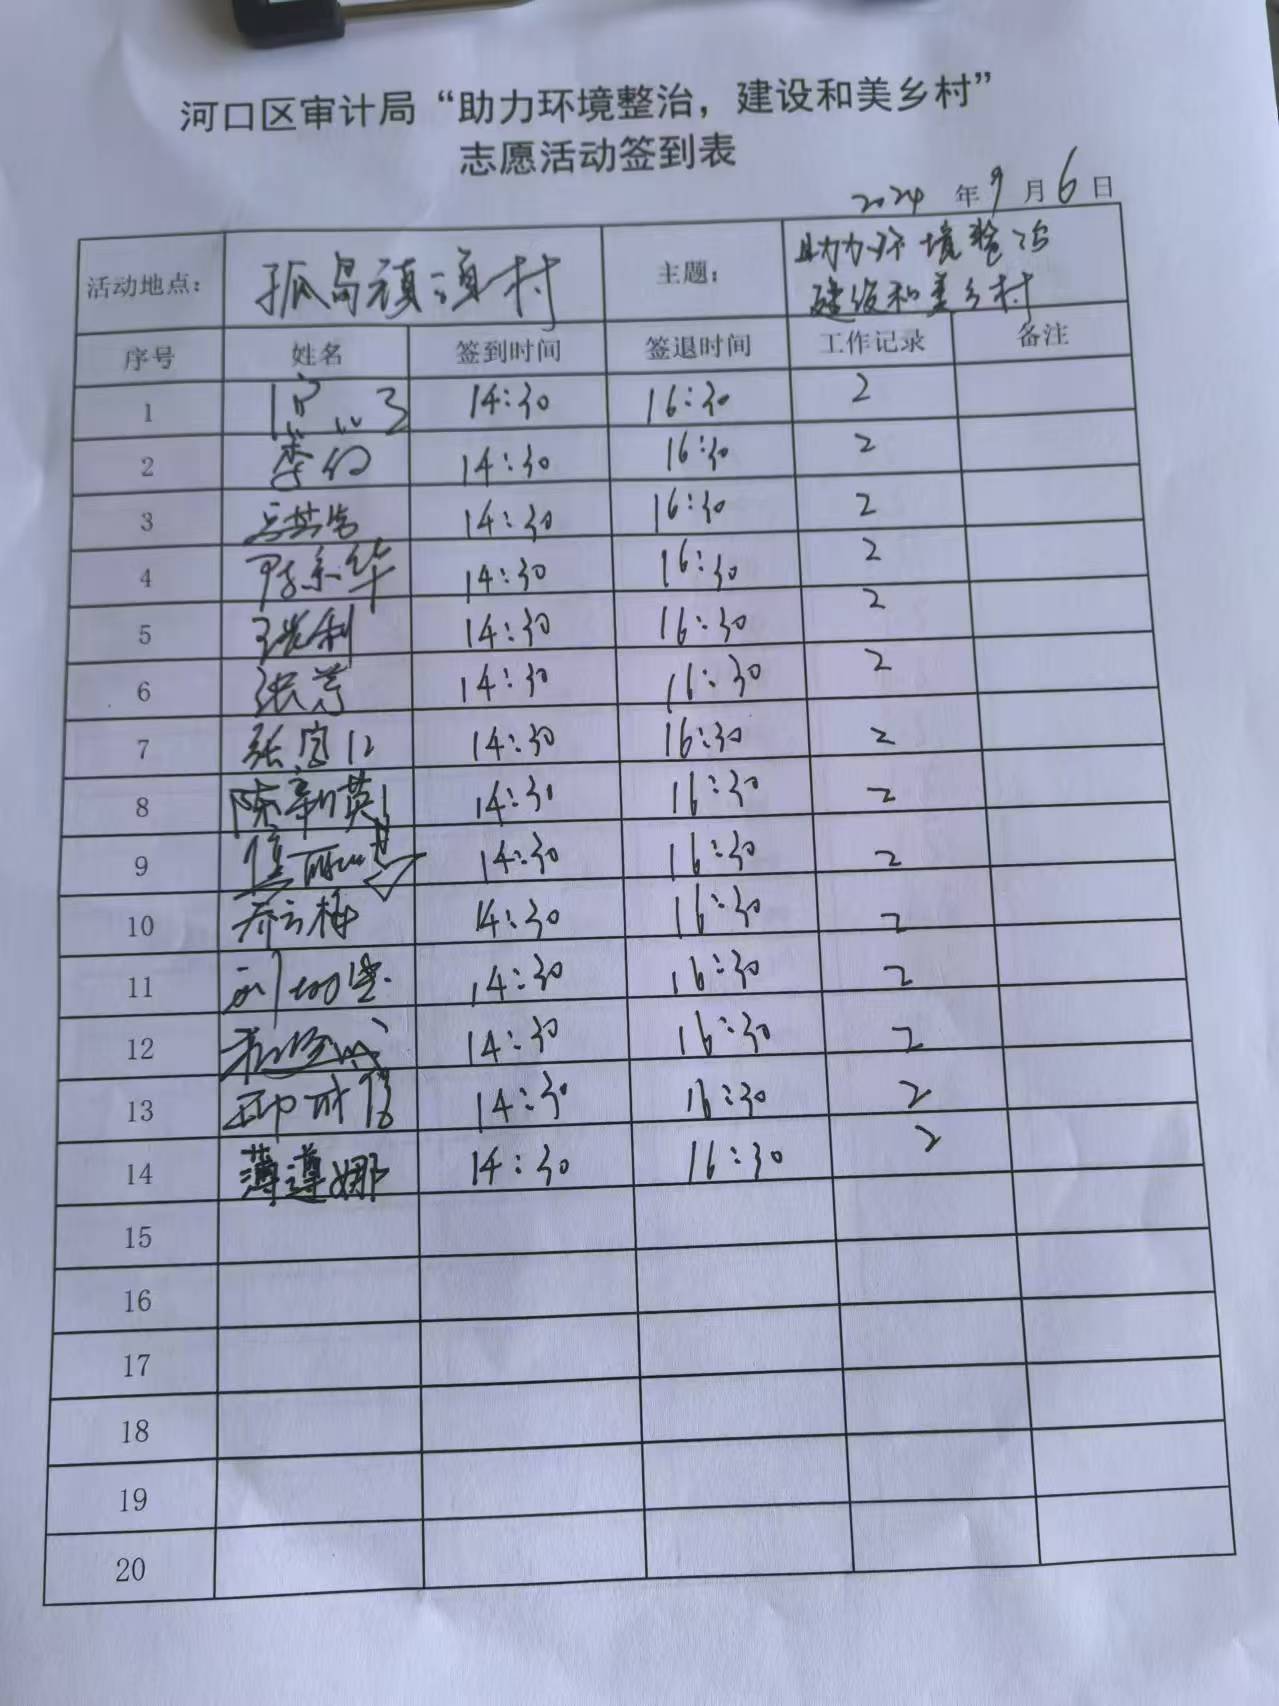 河口区审计局“助力环境整治，建设和美乡村”
志愿活动签到表
2024 年 9 月 6 日
活动地点： 孤岛镇 村 主题： 助力环境整治
建设和美乡村
序号 姓名 签到时间 签退时间 工作记录 备注
1 14:30 16:30 2
2 李 14:30 16:30 2
3 14:30 16:30 2
4 14:30 16:30 2
5 14:30 16:30 2
6 张芳 14:30 16:30 2
7 张 14:30 16:30 2
8 陈新英 14:30 16:30 2
9 14:30 16:30 2
10 乔云梅 14:30 16:30 2
11 14:30 16:30 2
12 14:30 16:30 2
13 14:30 16:30 2
14 薄遵娜 14:30 16:30 2
15
16
17
18
19
20